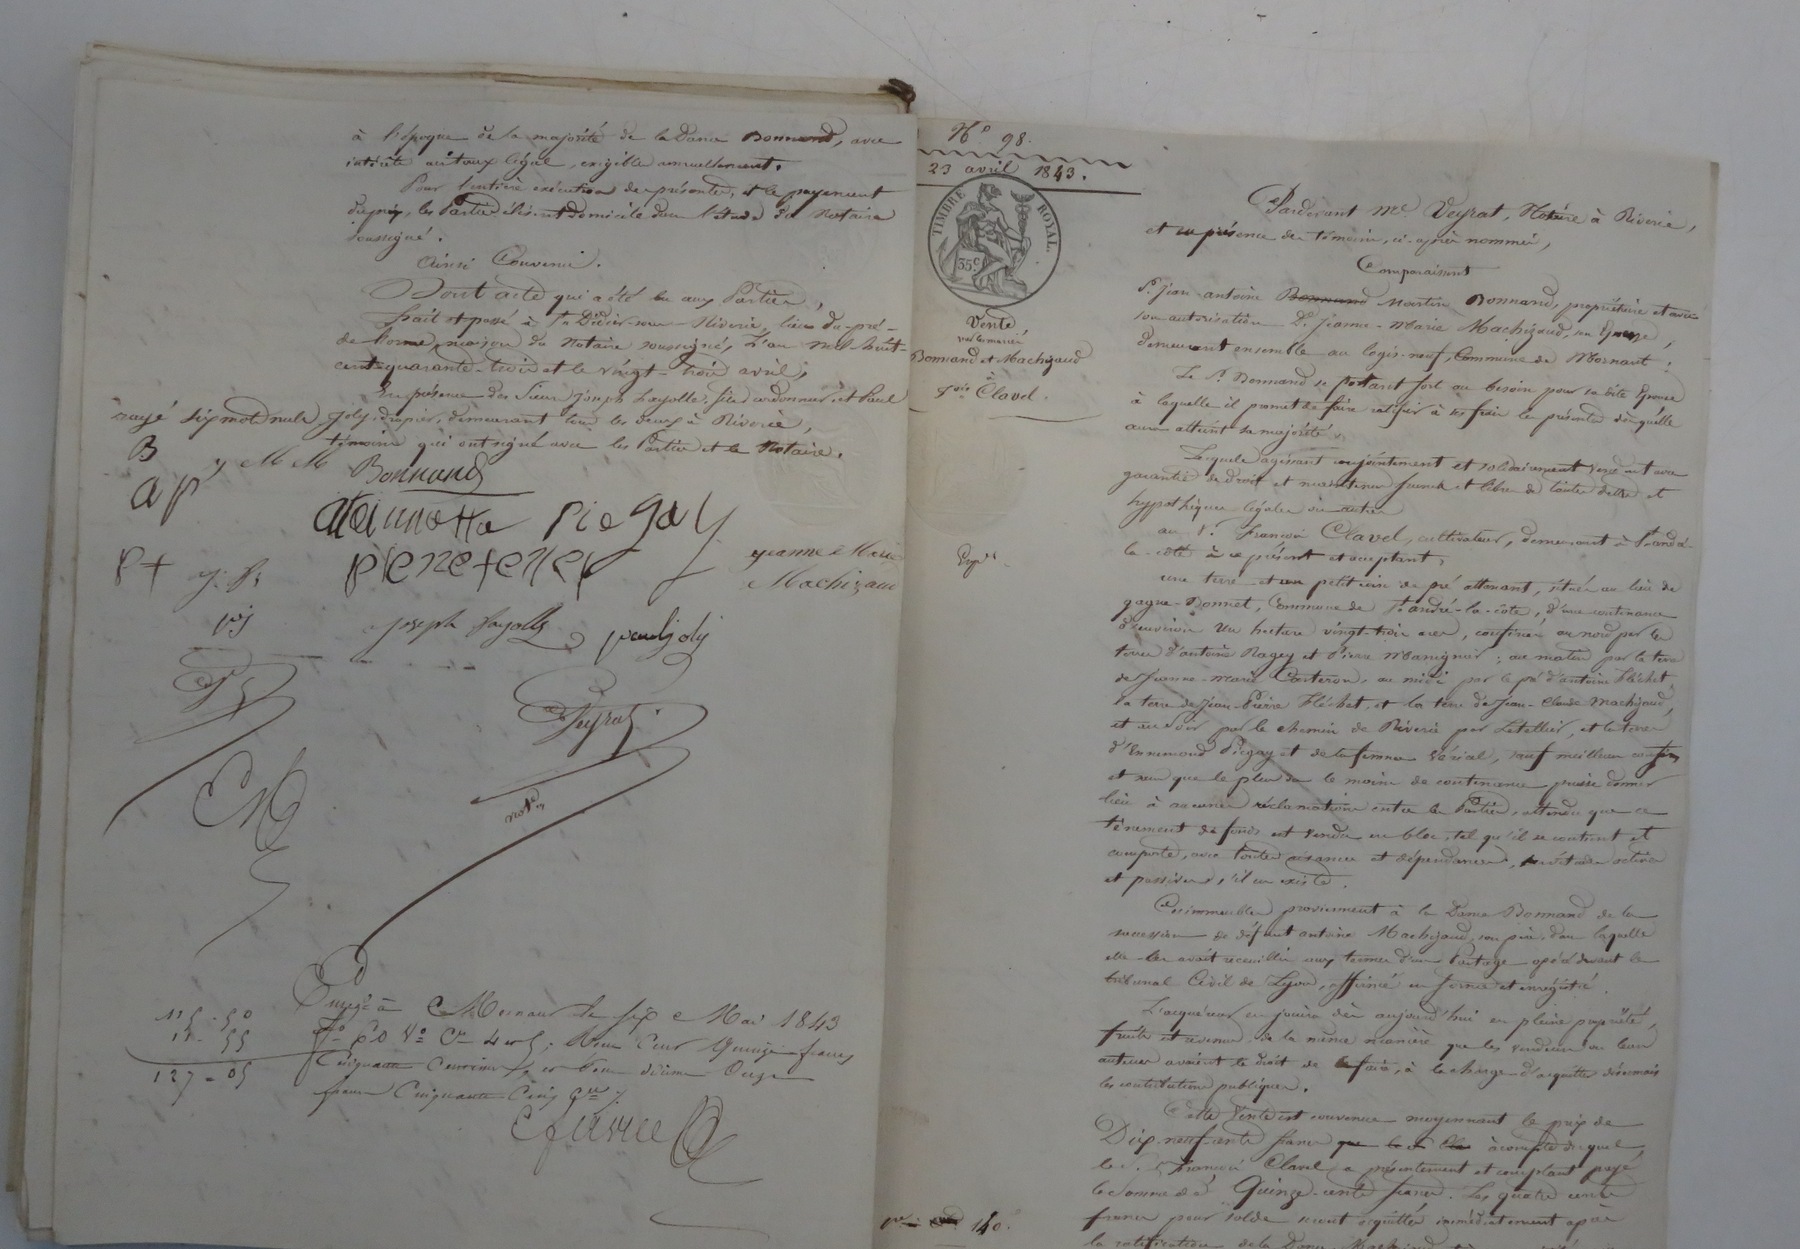 à l'époque de la majorité de la Dame Bonnand, avec
intérêts au taux légal, exigible annuellement.
Pour l'entière exécution des présentes, et le payement
du prix, les Parties élisent domicile dans l'étude du Notaire
soussigné.
Ainsi Convenu.
Dont acte qui a été lu aux Parties,
fait et passé à St Didier-sous-Riverie, lieu du pré-
de lorme, maison du Notaire soussigné, l'an mil-huit-
cent-quarante-trois et le vingt-trois avril,
En présence des Sieurs Joseph Fayolle fils cordonnier, et Paul
Joly, drapier, demeurant tous les deux à Riverie,
témoins qui ont signé avec les Parties et le Notaire.
rayé six mots nuls
B
J M M
Bonnand
a p
antoinette Piegay
P+
J. f.
jeanne Marie
Machizaud
pj
joseph fayolle
paul joly
Veyrat
not.re
CM
Enreg.é à Mornant le six Mai 1843
115-50
11-55
127-05
f.o 60 V.o C.es 4 et 5; Reçu Cent Quinze francs
Cinquante Centimes, et pour décime Onze
francs Cinquante Cinq C.mes
N.o 98.
23 avril 1843.
TIMBRE ROYAL.
35.c
Vente
par les mariés
Bonnand et Machizaud
à
f.ois Clavel.
Exp.on
140.
Pardevant M.e Veyrat, Notaire à Riverie,
et en présence des témoins, ci-après nommés,
Comparaissent
S.r Jean-antoine Bonnand Martin Bonnand, propriétaire et avec
son autorisation D.e Jeanne-Marie Machizaud, son Epouse,
demeurant ensemble au logis-neuf, Commune de Mornant;
Le S.r Bonnand se portant fort au besoin pour sa dite Epouse
à laquelle il promet de faire ratifier à ses frais les présentes dès qu'elle
aura atteint sa majorité,
Lesquels agissant conjointement et solidairement vendent avec
garantie de droit et maintenue franche et libre de toutes dettes et
hypothèques légales ou autres
au S.r François Clavel, cultivateur, demeurant à S.t andré-
la-côte à ce présent et acceptant,
une terre et un petit coin de pré attenant, situés au lieu de
gagne-Bonnet, Commune de S.t andré-la-côte, d'une contenance
d'environ un hectare vingt-trois ares, confinés au nord par les
terres d'antoine Ragey et Pierre Manignier; au matin par la terre
de Jeanne-Marie Carteron, au midi par le pré d'antoine Fléchet,
la terre de Jean-Pierre Fléchet, et la terre de Jean-Claude Machizaud,
et au soir par le chemin de Riverie par Letellier, et les terres
d'Ennemond Piégay et de la femme Vérial, sauf meilleurs confins
et sans que le plus ou le moins de contenance puisse donner
lieu à aucune réclamation entre les Parties, attendu que ce
tènement de fonds est vendu en bloc, tel qu'il se contient et
comporte, avec toutes aisances et dépendances, servitudes actives
et passives, s'il en existe.
Ces immeubles proviennent à la Dame Bonnand de la
succession de défunt antoine Machizaud, son père, dans laquelle
elle les avait recueillis aux termes d'un Partage opéré devant le
tribunal Civil de Lyon, affirmé en forme et enregistré.
L'acquéreur en jouira dès aujourd'hui en pleine propriété,
fruits et revenus, de la même manière que les vendeurs ou leurs
auteurs avaient le droit de le faire, à la charge d'acquitter désormais
les contributions publiques.
Cette Vente est convenue moyennant le prix de
Dix-neuf-cents francs à compte duquel
le S.r François Clavel a présentement et comptant payé
la Somme de Quinze-cents francs. Les quatre cents
francs pour solde seront acquittés immédiatement après
la ratification de la Dame Machizaud